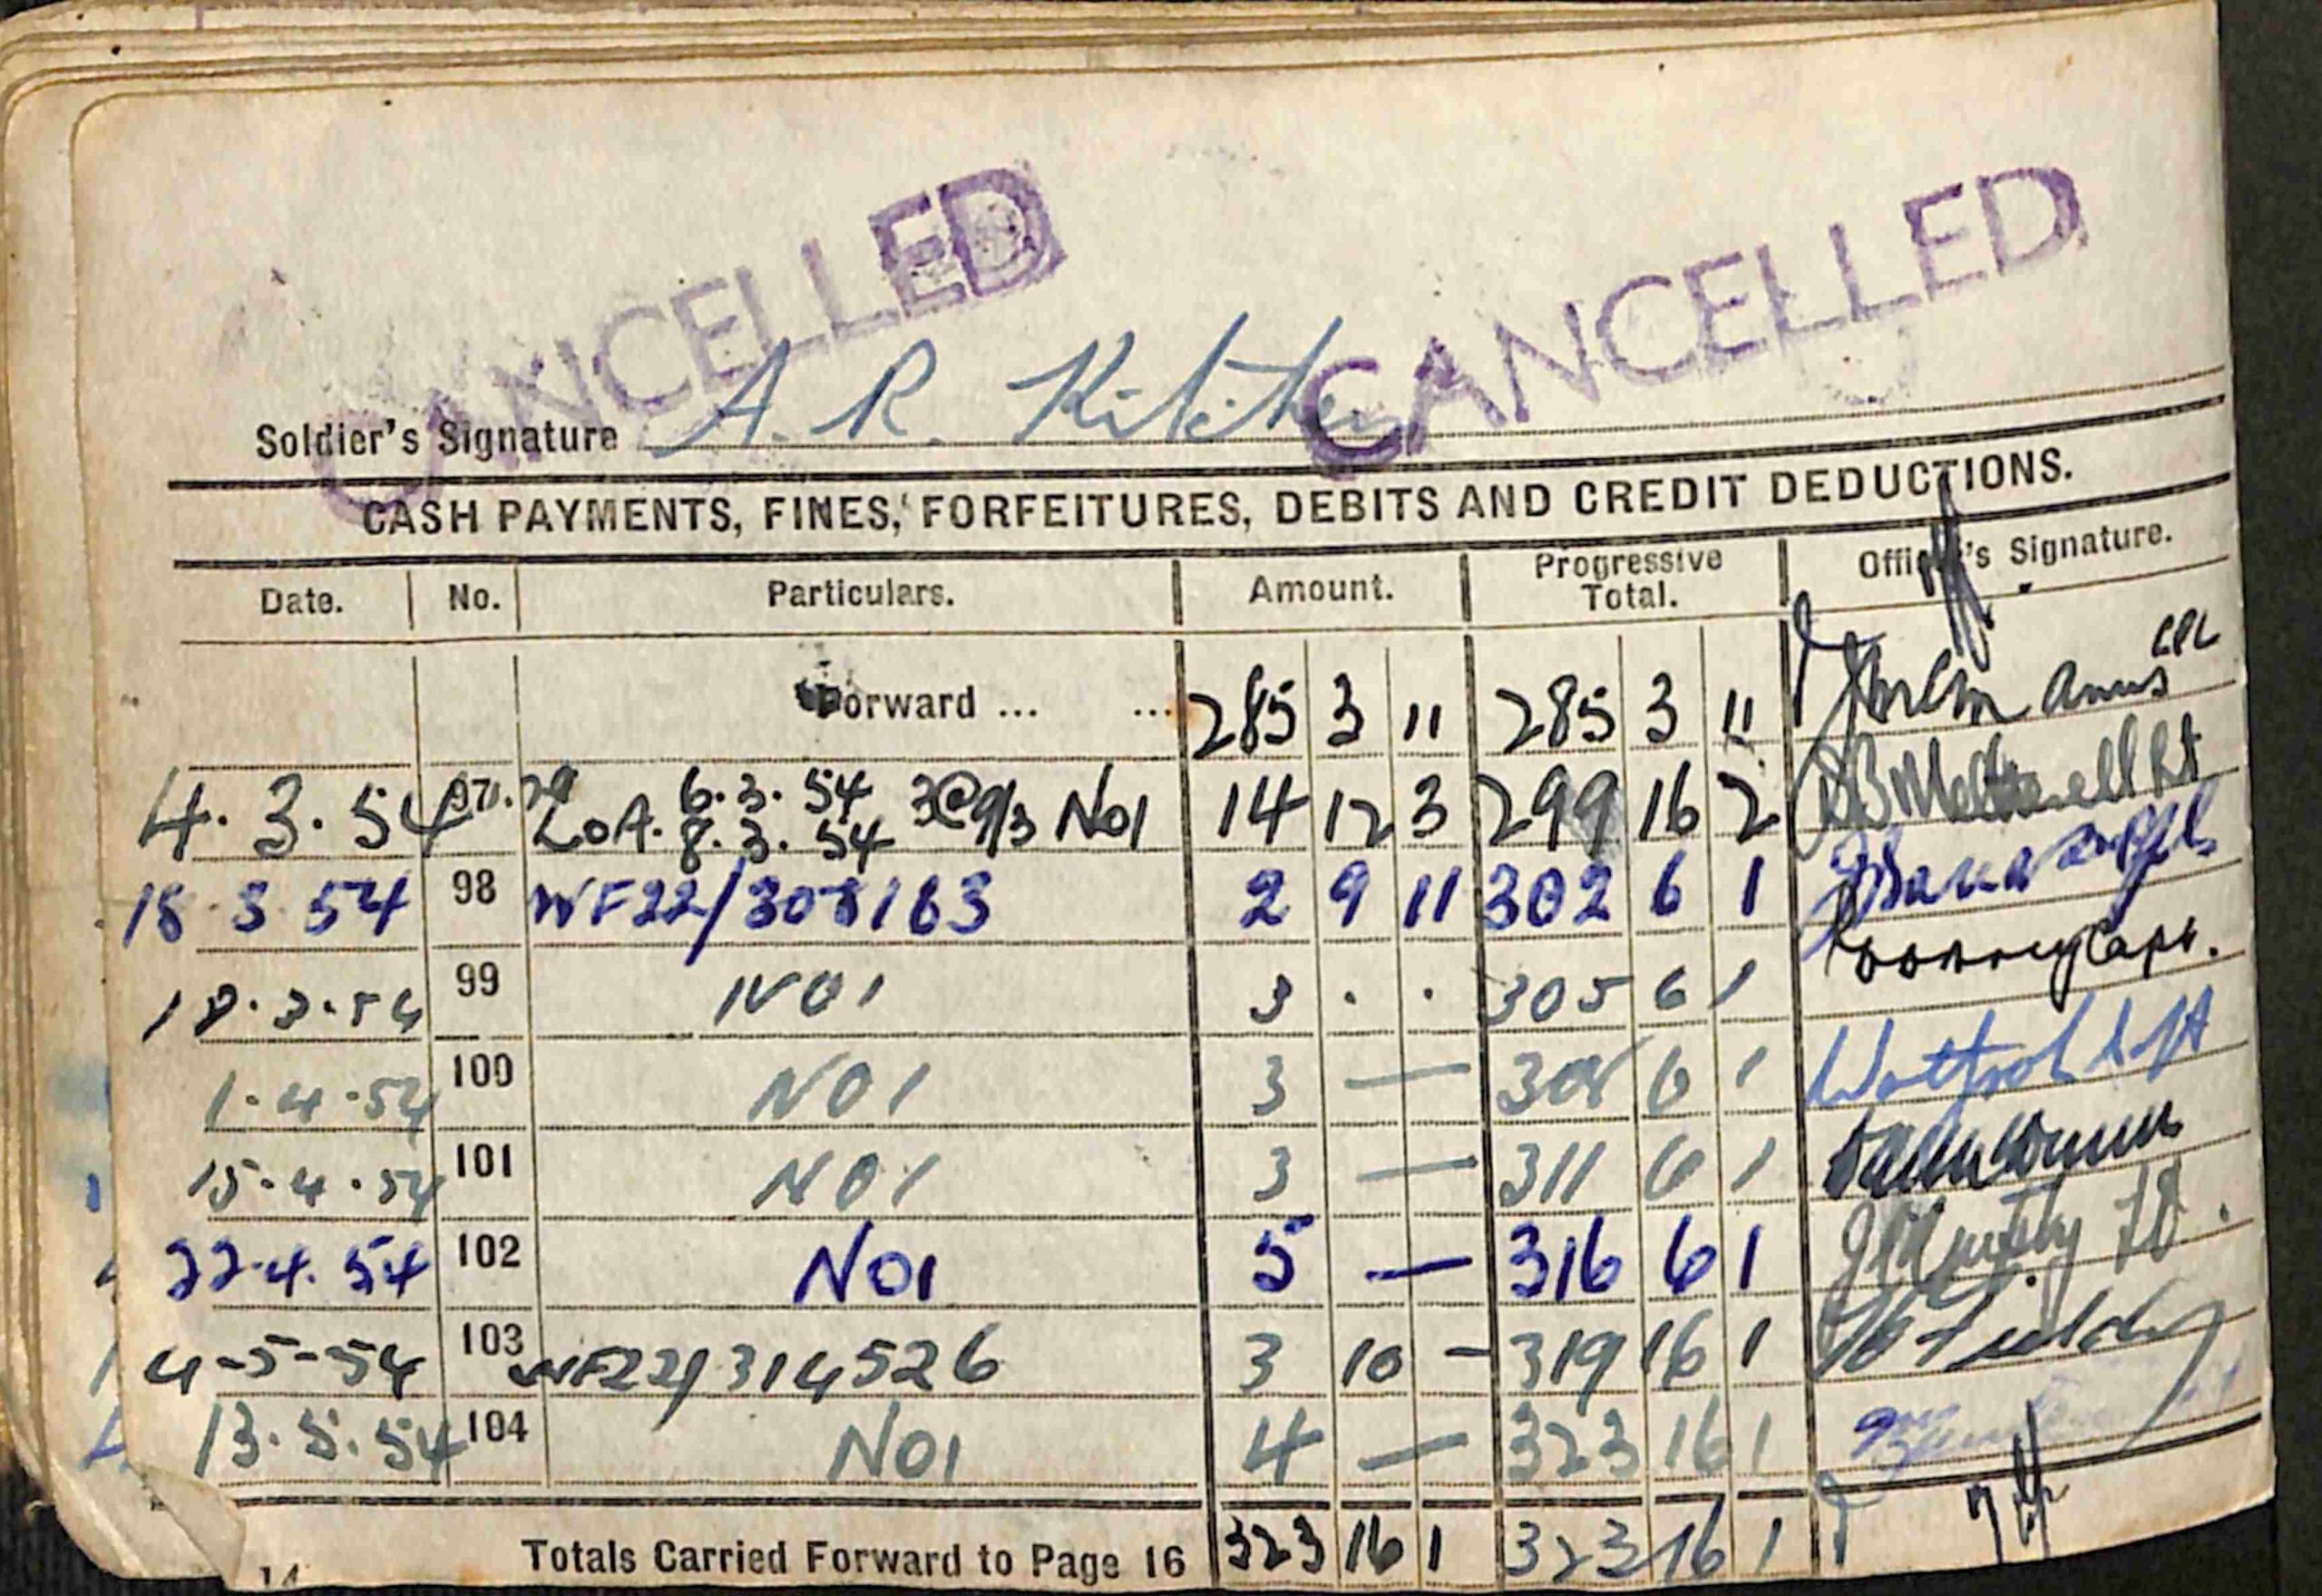 CANCELLED CANCELLED
Soldier's Signature A. R. Kitchen
CASH PAYMENTS, FINES, FORFEITURES, DEBITS AND CREDIT DEDUCTIONS.
Date. No. Particulars. Amount. Progressive Total. Officer's Signature.
Forward ... ... 285 3 11 285 3 11 CPL
4.3.54 97. LOA. 6.3.54 8.3.54 3@9/3 No1 14 12 3 299 16 2 Lt
18 3 54 98 WF22/308163 2 9 11 302 6 1
18.3.54 99 NO1 3 . . 305 6 1 Capt.
1.4.54 100 NO1 3 — 308 6 1
15.4.54 101 NO1 3 — 311 6 1
22.4.54 102 NO1 5 — 316 6 1
4-5-54 103 WF22/314526 3 10 - 319 16 1
13.5.54 104 NO1 4 — 323 16 1
Totals Carried Forward to Page 16 323 16 1 323 16 1
14